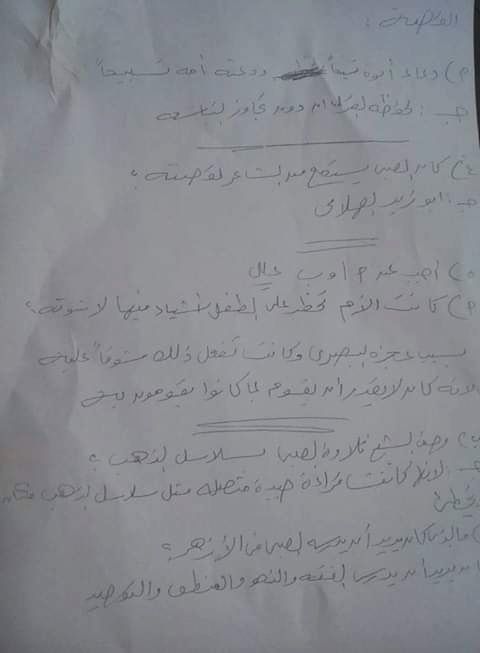 القصة :
م) دعاء أبوه شيخاً ودعته أمه شيخاً
جـ : لحفظه القرآن دون تجاوز التاسعة
كان الصبى يستمع من الشاعر لقصته ؟
جـ : أبو زيد الهلالى
٥) أجب عن م أو ب علل
م) كانت الأم تحظر على الطفل أشياء منها لا شوته ؟
بسبب عجزه البصرى وكانت تفعل ذلك خوفاً عليه
ولأنه كان لا يقدر أن يقوم لما كانوا يقومون به
ب) وصف الشيخ تلاوة الصبى بسلاسل الذهب ؟
جـ : لأنها كانت قراءة جيدة متصلة مثل سلاسل الذهب
يخطئ
ما الذى كان يريد أن يدرسه الصبى فى الأزهر ؟
يريد أن يدرس الفقه والنحو والمنطق والتوحيد